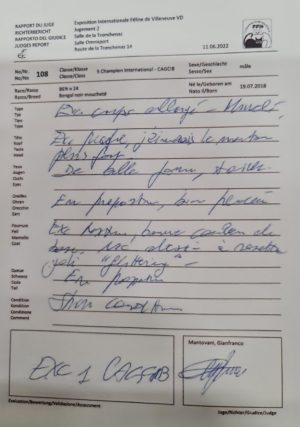 RAPPORT DU JUGE
RICHTERBERICHT
RAPPORTO DEL GIUDICE
JUDGES REPORT
Exposition Internationale Féline de Villeneuve VD
Jugement 2
Salle de la Tronchenaz
Salle Omnisport
Route de la Tronchenaz 14
11.06.2022
FFH
No/Nr. 108
Classe/Klasse
Classe/Class
5 Champion International - CAGCIB
Sexe/Geschlecht
Sesso/Sex
mâle
Race/Rasse
Razza/Breed
BEN n 24
Bengal noir moucheté
Né le/Geboren am
Nato il/Born
19.07.2018
Type
Typ
Tipo
Type
De corps allongé - Musclé
Tête
Kopf
Testa
Head
le menton
plus fort
Yeux
Augen
Occhi
Eyes
De belle forme,
Oreilles
Ohren
Orecchie
Ears
En proportion, bien placées
Fourrure
Fell
Mantello
Coat
Exc texture, bonne couleur de
base, à rosettes
joli "glittering"
Queue
Schwanz
Coda
Tail
En proportion
Condition
Kondition
Condizione
Condition
Comment
Show condition
EXC 1 CAGCIB
Mantovani, Gianfranco
Evaluation/Bewertung/Validazione/Assessment
Juge/Richter/Giudice/Judge